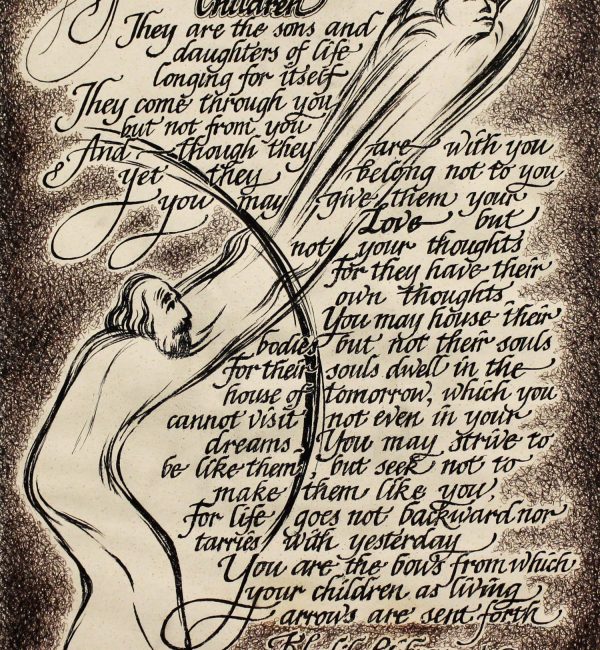 Children
They are the sons and
daughters of life
longing for itself
They come through you
but not from you
And though they are with you
yet they belong not to you
you may give them your
Love but
not your thoughts
For they have their
own thoughts
You may house their
bodies but not their souls
For their souls dwell in the
house of tomorrow, which you
cannot visit not even in your
dreams. You may strive to
be like them, but seek not to
make them like you,
For life goes not backward nor
tarries with yesterday
You are the bows from which
your children as living
arrows are sent forth